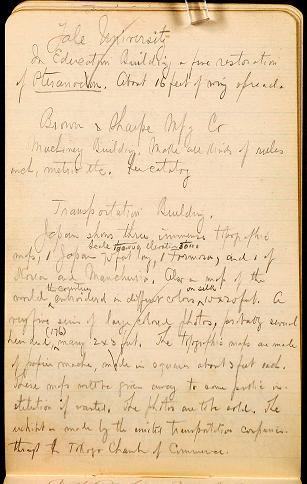 Yale University
In Education Building a fine restoration
of Pteranodon. About 16 feet of wing spread.
Brown & Sharpe Mfg Co
Machinery Building. Make all kinds of rules
inch, metric etc. See catalog
Transportation Building.
Japan shows three immense topographic
maps, 1 Japan long, 1 Formosa, and 1 of
Korea and Manchuria. Also a map of the
world, the countries embroidered in different colors on silk, 10 x 20 feet. A
very fine series of large colored photos, probably several
hundred (176) many 2 x 3 feet. The topographic maps are made
of papier mache, made in squares about 3 feet each.
These maps will be given away to some public in-
stitution if wanted. The photos are to be sold. The
exhibit is made by the united transportation companies
through the Tokyo Chamber of Commerce.